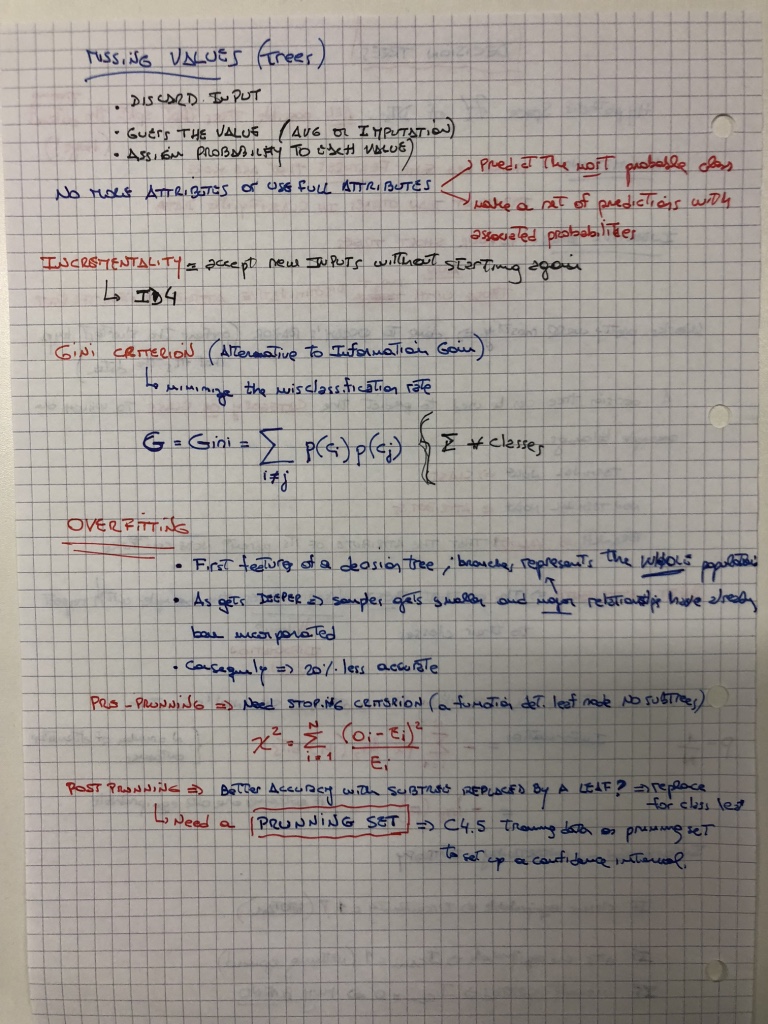 MISSING VALUES (Trees)
• DISCARD INPUT
• GUESS THE VALUE (AVG or IMPUTATION)
• ASSIGN PROBABILITY TO EACH VALUE)
NO MORE ATTRIBUTES or USE FULL ATTRIBUTES
→ Predict The most probable class
→ make a set of predictions with
associated probabilities
INCREMENTALITY = accept new INPUTS without starting again
↳ ID4
GINI CRITERION (Alternative to Information Gain)
↳ minimize the misclassification rate
G = Gini = ∑ i≠j p(ci) p(cj) { Σ ≠ classes
OVERFITTING
• First feature of a decision tree, branches represents the WHOLE population
• As gets DEEPER => samples gets smaller and major relationships have already
been incorporated
• => 20% less accurate
PRE-PRUNNING => Need STOPING CRITERION (a function det. leaf node NO SUBTREES)
χ² = ∑ i=1 N (Oi - Ei)² / Ei
POST PRUNNING => Better Accuracy with SUBTREE REPLACED BY A LEAF? => replace
for class leaf
↳ Need a PRUNNING SET => C4.5 Training data as prunning set
to set up a confidence interval.